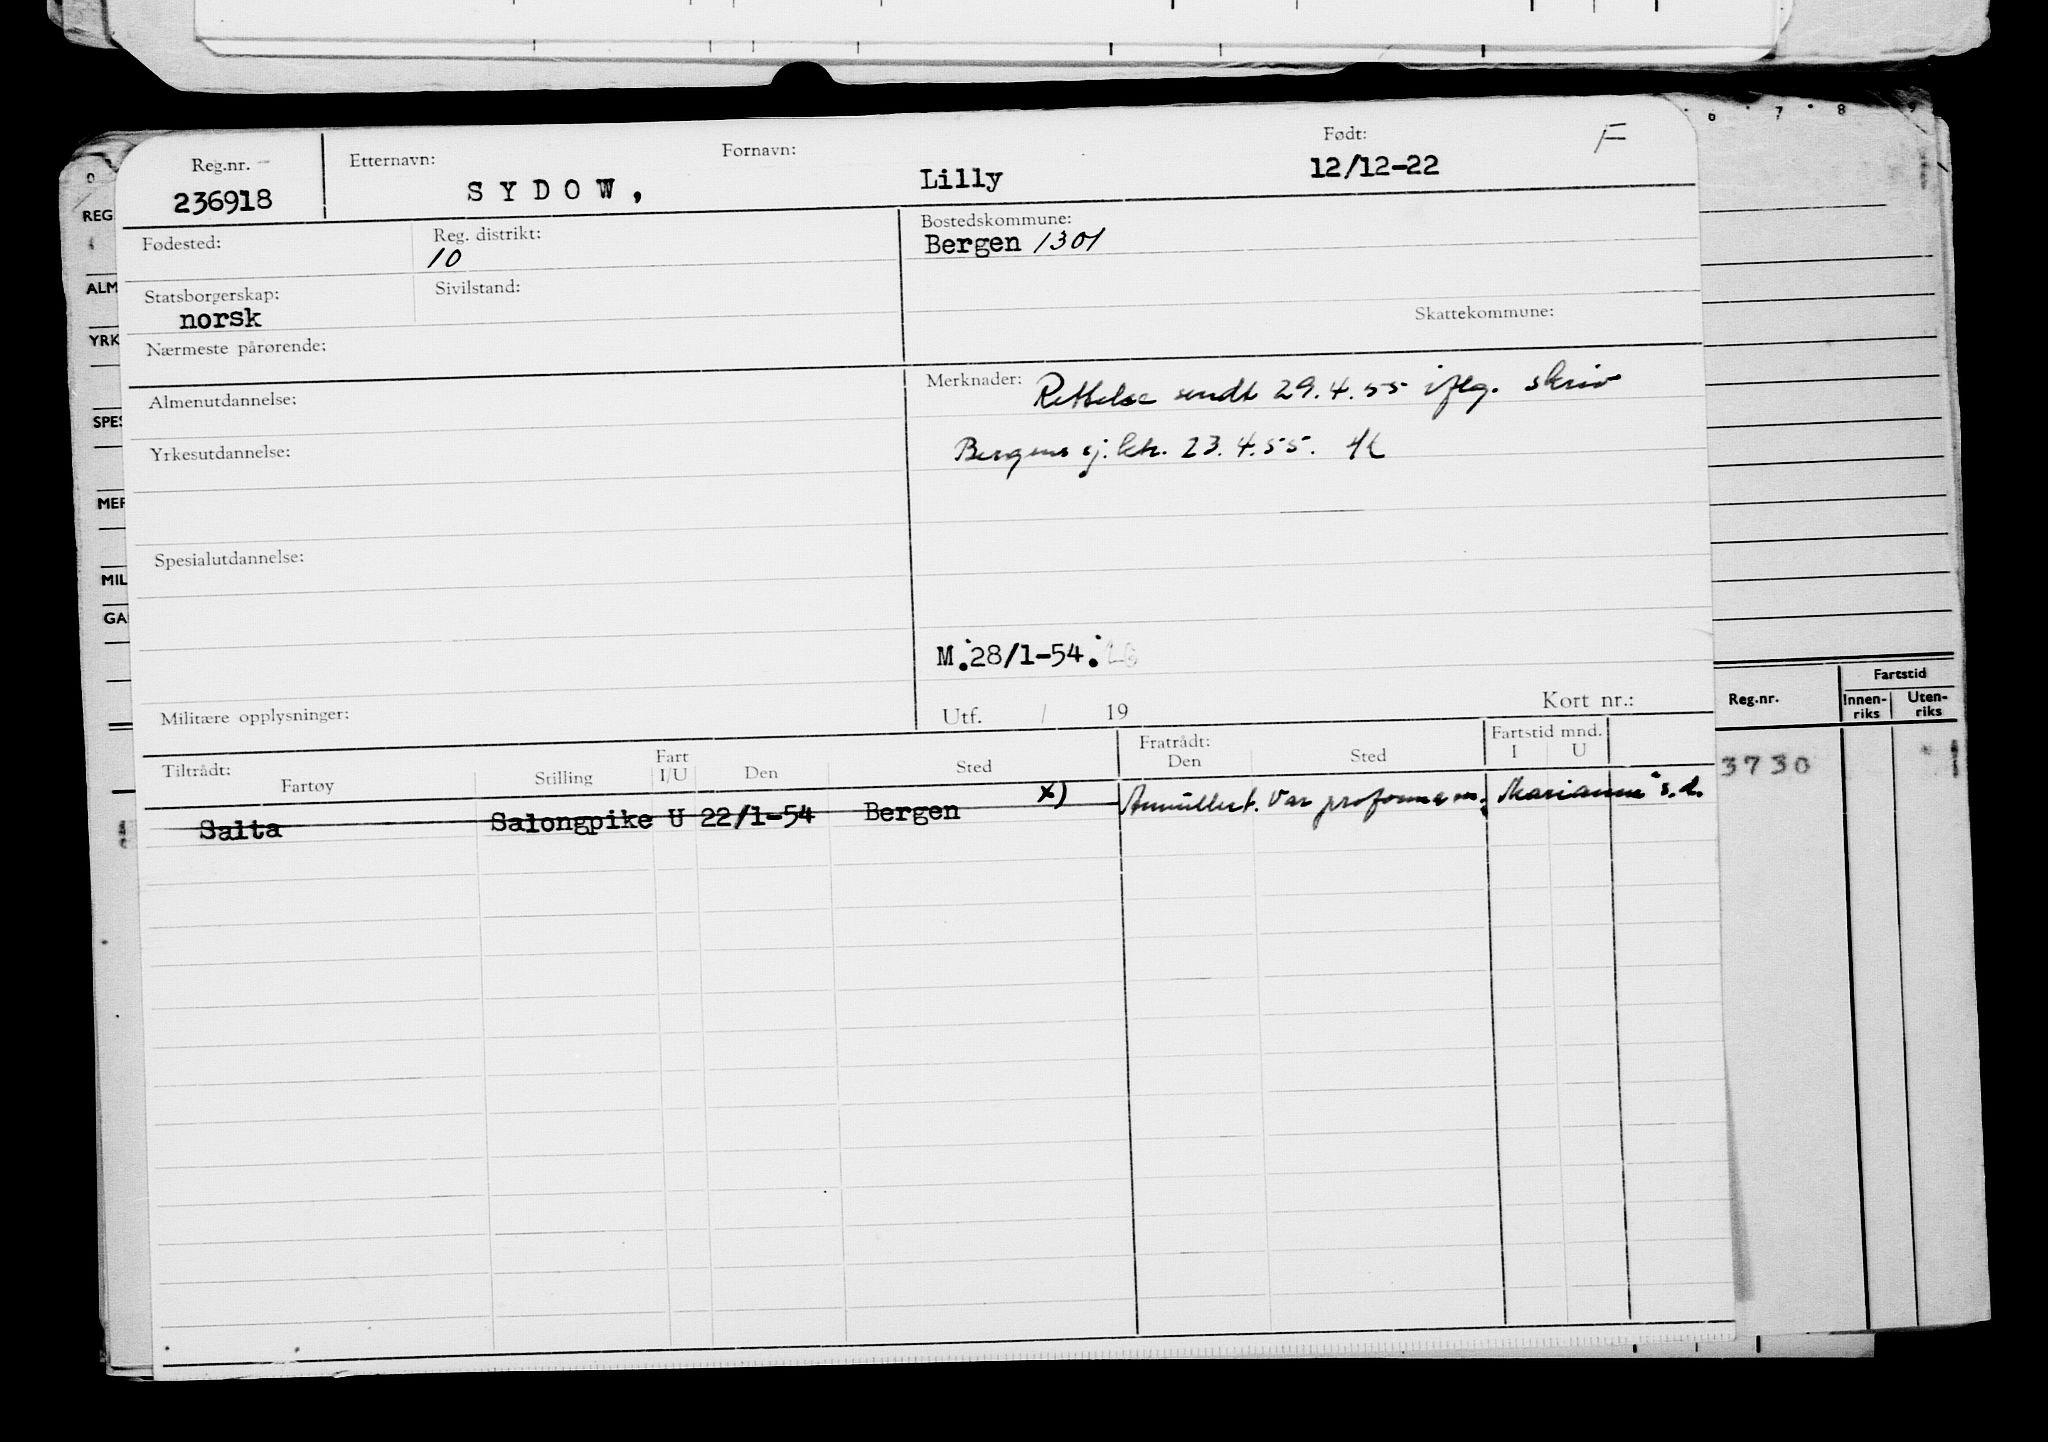 6 7 8 9
Reg.nr. Etternavn: Fornavn: Født: F
236918 SYDOW, Lilly 12/12-22
0
REG.
Fødested: Reg. distrikt: Bostedskommune:
10 Bergen 1301
ALM
Statsborgerskap: Sivilstand:
norsk Skattekommune:
YRK
Nærmeste pårørende:
Almenutdannelse: Merknader: Rettelse sendt 29.4.55 iflg. skriv
SPES
Yrkesutdannelse: Bergens sj. ktr. 23.4.55.
MER
Spesialutdannelse:
MIL
GA
M:28/1-54:
Militære opplysninger: Utf. / 19 Kort nr.:
Reg.nr. Fartstid
Innen-riks Uten-riks
Tiltrådt: Fratrådt: Fartstid mnd.
Fartøy Stilling Fart I/U Den Sted Den Sted I U
3730
Salta Salongpike U 22/1-54 Bergen x) Annullert. Var proforma m. "Marianne" s.d.